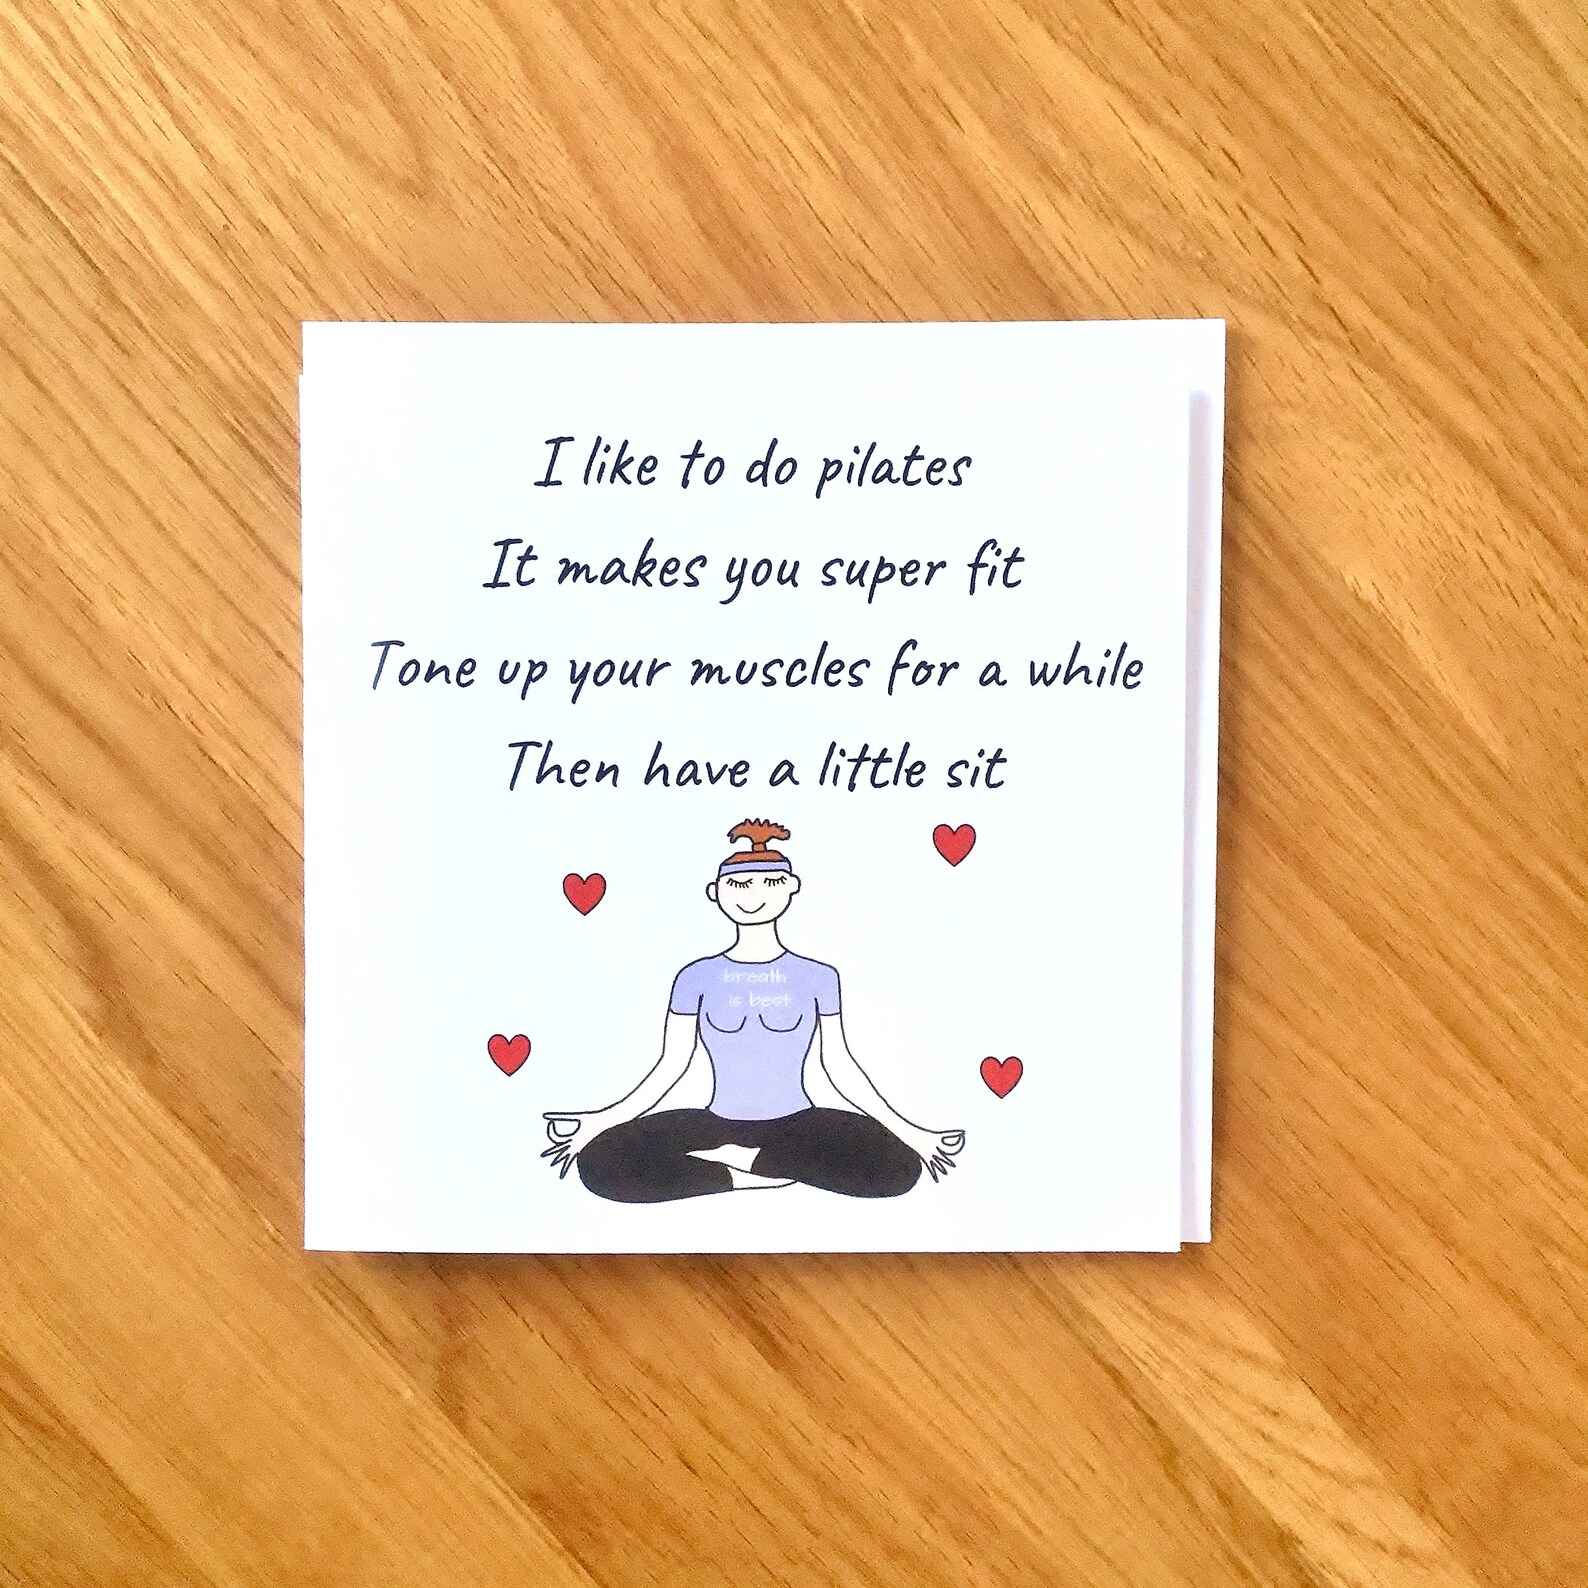 I like to do pilates
It makes you super fit
Tone up your muscles for a while
Then have a little sit
breath
is best